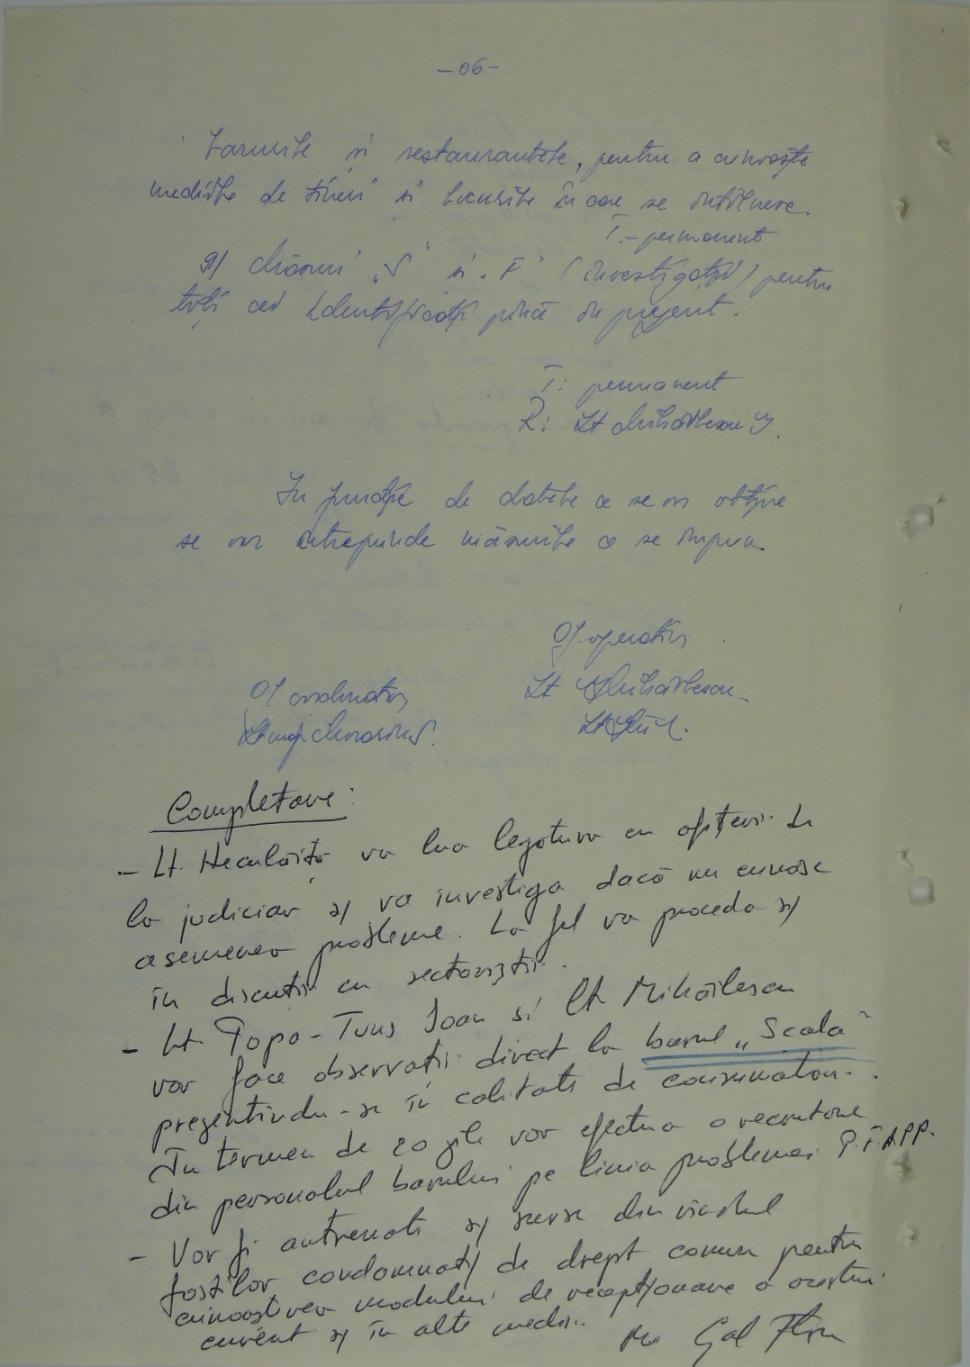 -06-
barurile și restaurantele, pentru a cunoaște
mediile de tineri și locurile în care se întîlnesc.
T.- permanent
g/ Măsuri „S" și „F" (investigații) pentru
toți cei identificați pînă în prezent.
T: permanent
R: Lt Mihăilescu
În funcție de datele ce se vor obține
se vor întreprinde măsurile ce se impun.
Of. operativ
Lt Mihăilescu
Of coordonator
Lt maj.
Completare:
- Lt. va lua legătura cu ofițeri de
la judiciar și va investiga dacă nu cunosc
asemenea probleme. La fel va proceda și
în discuții cu sectoriștii.
- Lt. Popa-Tuns Ioan și lt. Mihăilescu
vor face observații direct la barul „Scala"
prezentîndu-se în calitate de consumatori.
În termen de 20 zile vor efectua o recrutare
din personalul barului pe linia problemei
- Vor fi antrenate și surse din rîndul
foștilor condamnați de drept comun pentru
cunoașterea modului de recepționare a acestui
curent și în alte medii.